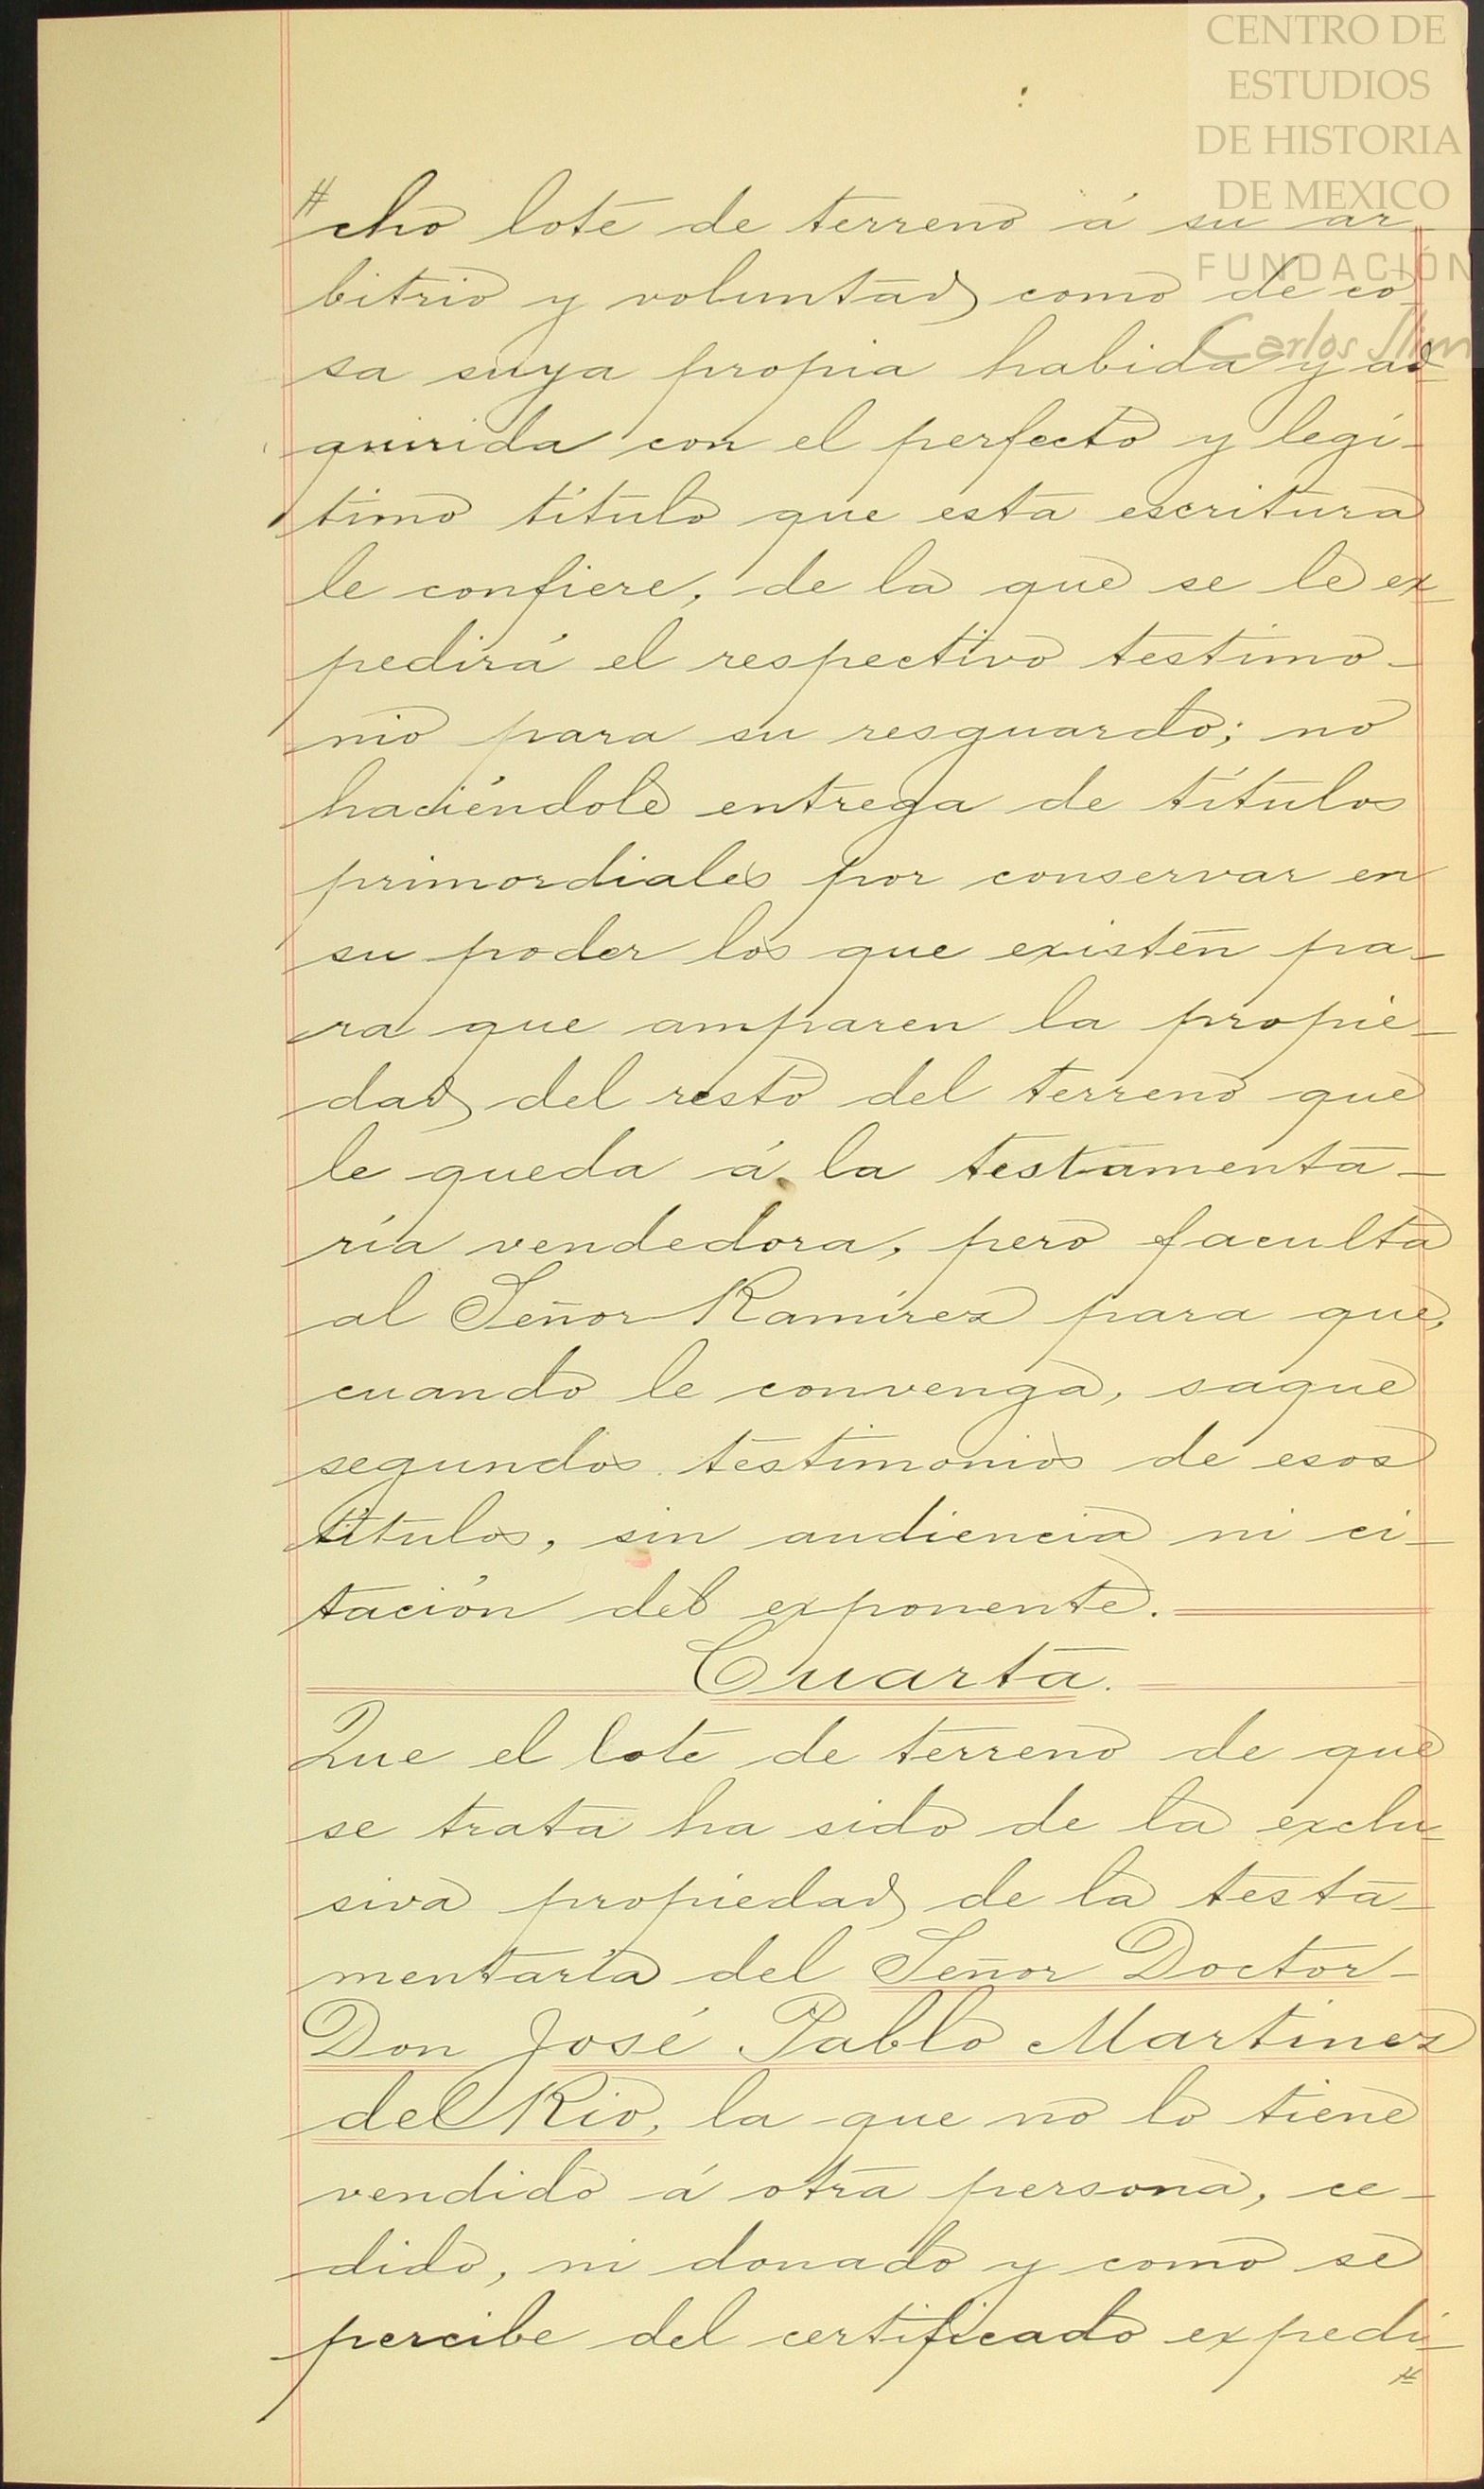 CENTRO DE
ESTUDIOS
DE HISTORIA
DE MEXICO
FUNDACIÓN
Carlos Slim
cho lote de terreno á su ar-
bitrio y voluntad como de co-
sa suya propia habida y ad-
quirida con el perfecto y legí-
timo título que esta escritura
le confiere, de la que se le ex-
pedirá el respectivo testimo-
nio para su resguardo; no
haciéndole entrega de títulos
primordiales por conservar en
su poder los que existen pa-
ra que amparen la propie-
dad del resto del terreno que
le queda á la testamenta-
ría vendedora, pero faculta
al Señor Ramírez para que,
cuando le convenga, saque
segundos testimonios de esos
títulos, sin audiencia ni ci-
tación del exponente.
Cuarta.
Que el lote de terreno de que
se trata ha sido de la exclu-
siva propiedad de la testa-
mentaría del Señor Doctor
Don José Pablo Martinez
del Rio, la que no lo tiene
vendido á otra persona, ce-
dido, ni donado y como se
percibe del certificado expedi-